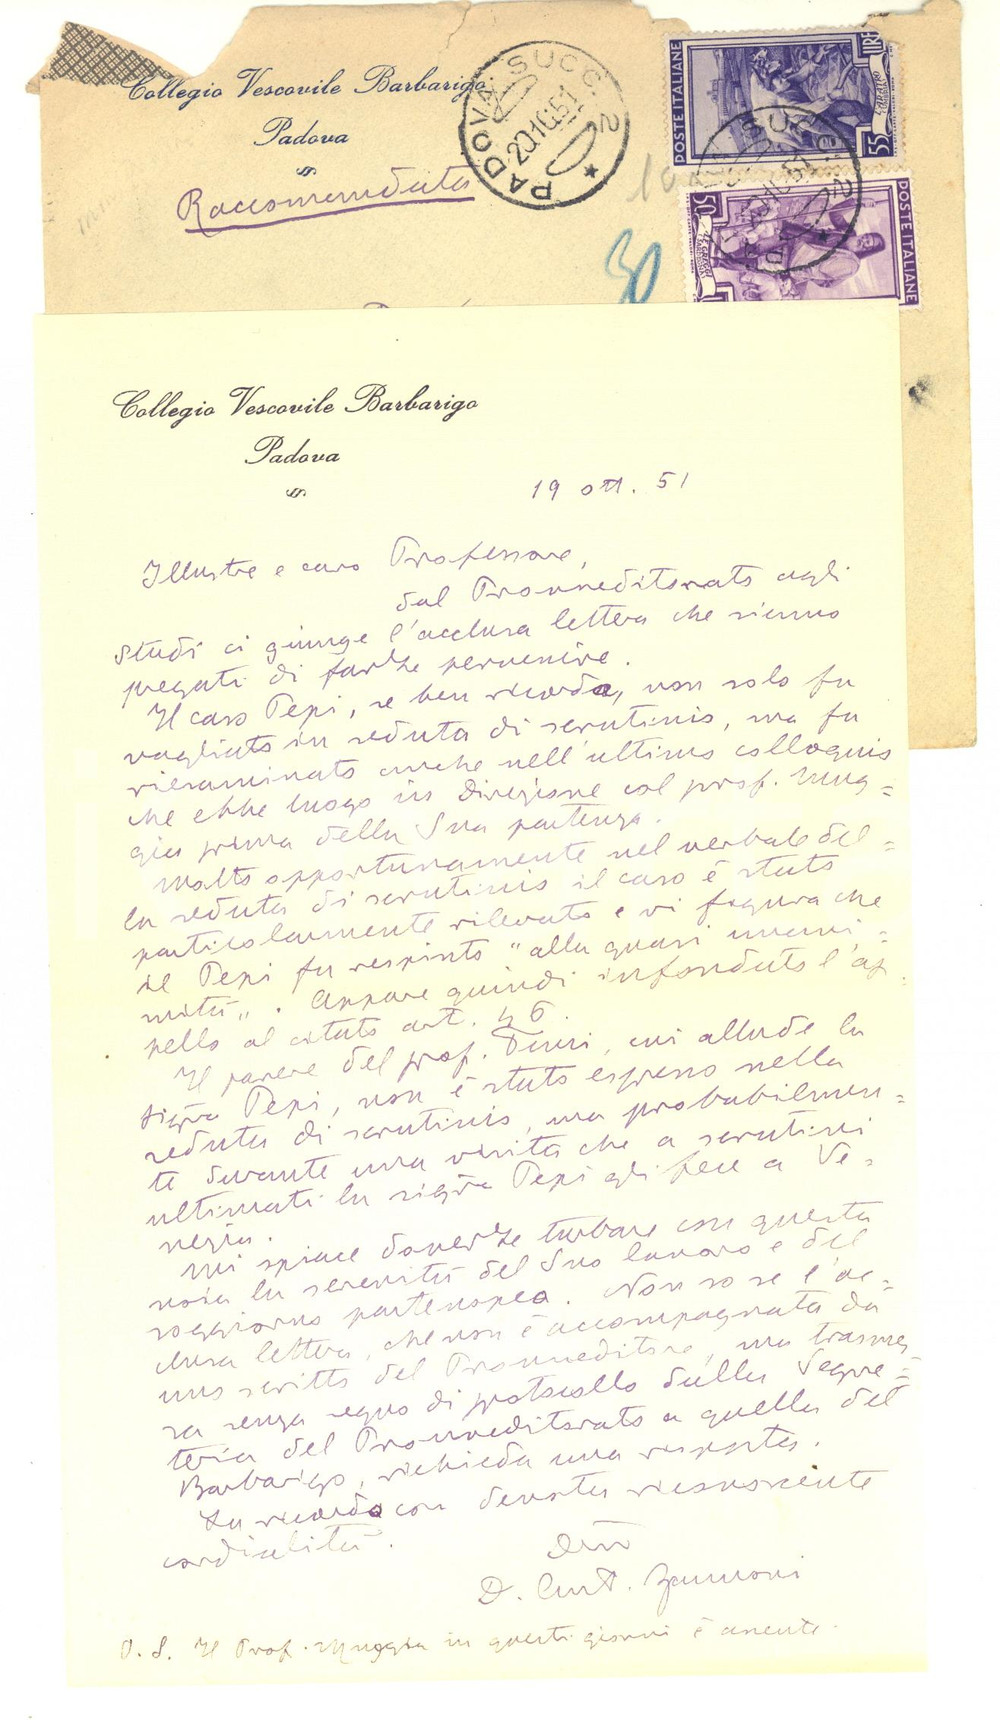 Collegio Vescovile Barbarigo
Padova
Raccomandata
PADOVA SUCC. 2
20.10.51
POSTE ITALIANE
LIRE
55
POSTE ITALIANE
50
30
Collegio Vescovile Barbarigo
Padova
19 ott. 51
Illustre e caro Professore,
dal Provveditorato agli
studi ci giunge l'acclusa lettera che siamo
pregati di farLe pervenire.
Il caso Pepi, se ben ricorda, non solo fu
vagliato in seduta di scrutinio, ma fu
riesaminato anche nell'ultimo colloquio
che ebbe luogo in Direzione col prof. Mug=
gia prima della Sua partenza.
Molto opportunamente nel verbale del=
la seduta di scrutinio il caso è stato
particolarmente rilevato e vi figura che
il Pepi fu respinto "alla quasi unani=
mità". Appare quindi infondato l'ap
pello al citato art. 46.
Il parere del prof. cui allude la
sigra Pepi, non è stato espresso nella
seduta di scrutinio, ma probabilmen=
te durante una visita che a scrutini
ultimati la sigra Pepi gli fece a Ve=
nezia.
Mi spiace doverLe turbare con questa
noia la serenità del Suo lavoro e del
soggiorno partenopeo. Non so se l'ac=
clusa lettera, che non è accompagnata da
uno scritto del Provveditore, ma trasmes=
sa senza segno di protocollo dalla Segre=
teria del Provveditorato a quella del
Barbarigo, richieda una risposta.
La ricordo con devota riconoscente
cordialità.
D. Zannoni
P. S. Il Prof. Muggia in questi giorni è assente.